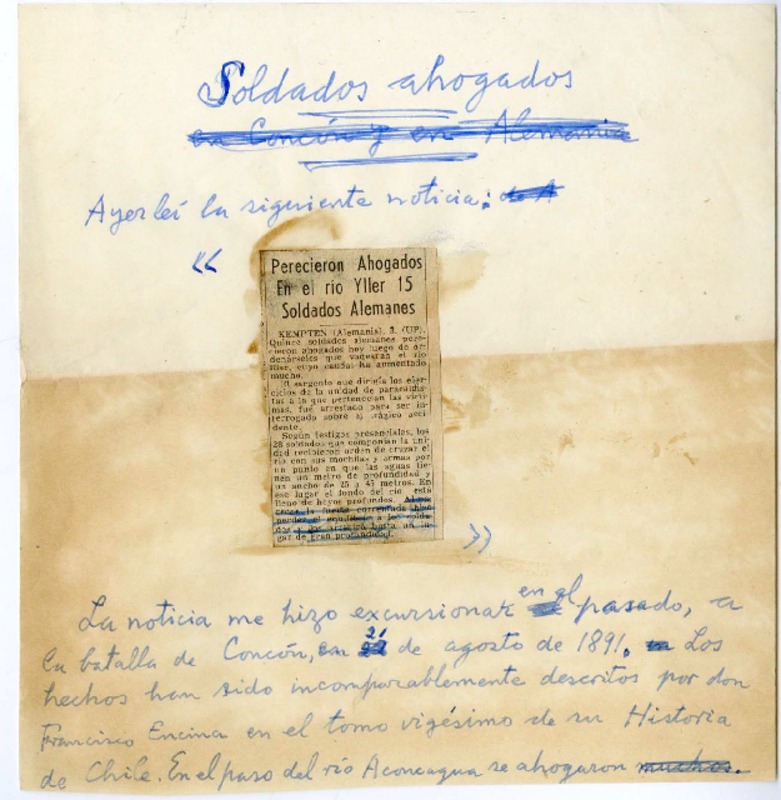 Soldados ahogados
en Concón y en Alemania
Ayer leí la siguiente noticia: de A
«
Perecieron Ahogados
En el río Yller 15
Soldados Alemanes
KEMPTEN (Alemania), 3. (UP).
Quince soldados alemanes pere-
cieron ahogados hoy luego de or-
denárseles que vadearan el río
Iller, cuyo caudal ha aumentado
mucho.
El sargento que dirigía los ejer-
cicios de la unidad de paracaidis-
tas a la que pertenecían las vícti-
mas, fué arrestado para ser in-
terrogado sobre el trágico acci
dente.
Según testigos presenciales, los
28 soldados que componían la uni-
dad recibieron orden de cruzar el
río con sus mochilas y armas por
un punto en que las aguas tie-
nen un metro de profundidad y
un ancho de 25 a 45 metros. En
ese lugar el fondo del río está
lleno de hoyos profundos. Al pa-
recer la fuerte correntada hizo
perder el equilibrio a los solda-
dos y los arrastró hasta un lu-
gar de gran profundidad.
»
La noticia me hizo excursionar en el pasado, a
la batalla de Concón, en 21 de agosto de 1891. Los
hechos han sido incomparablemente descritos por don
Francisco Encina en el tomo vigésimo de su Historia
de Chile. En el paso del río Aconcagua se ahogaron muchos.